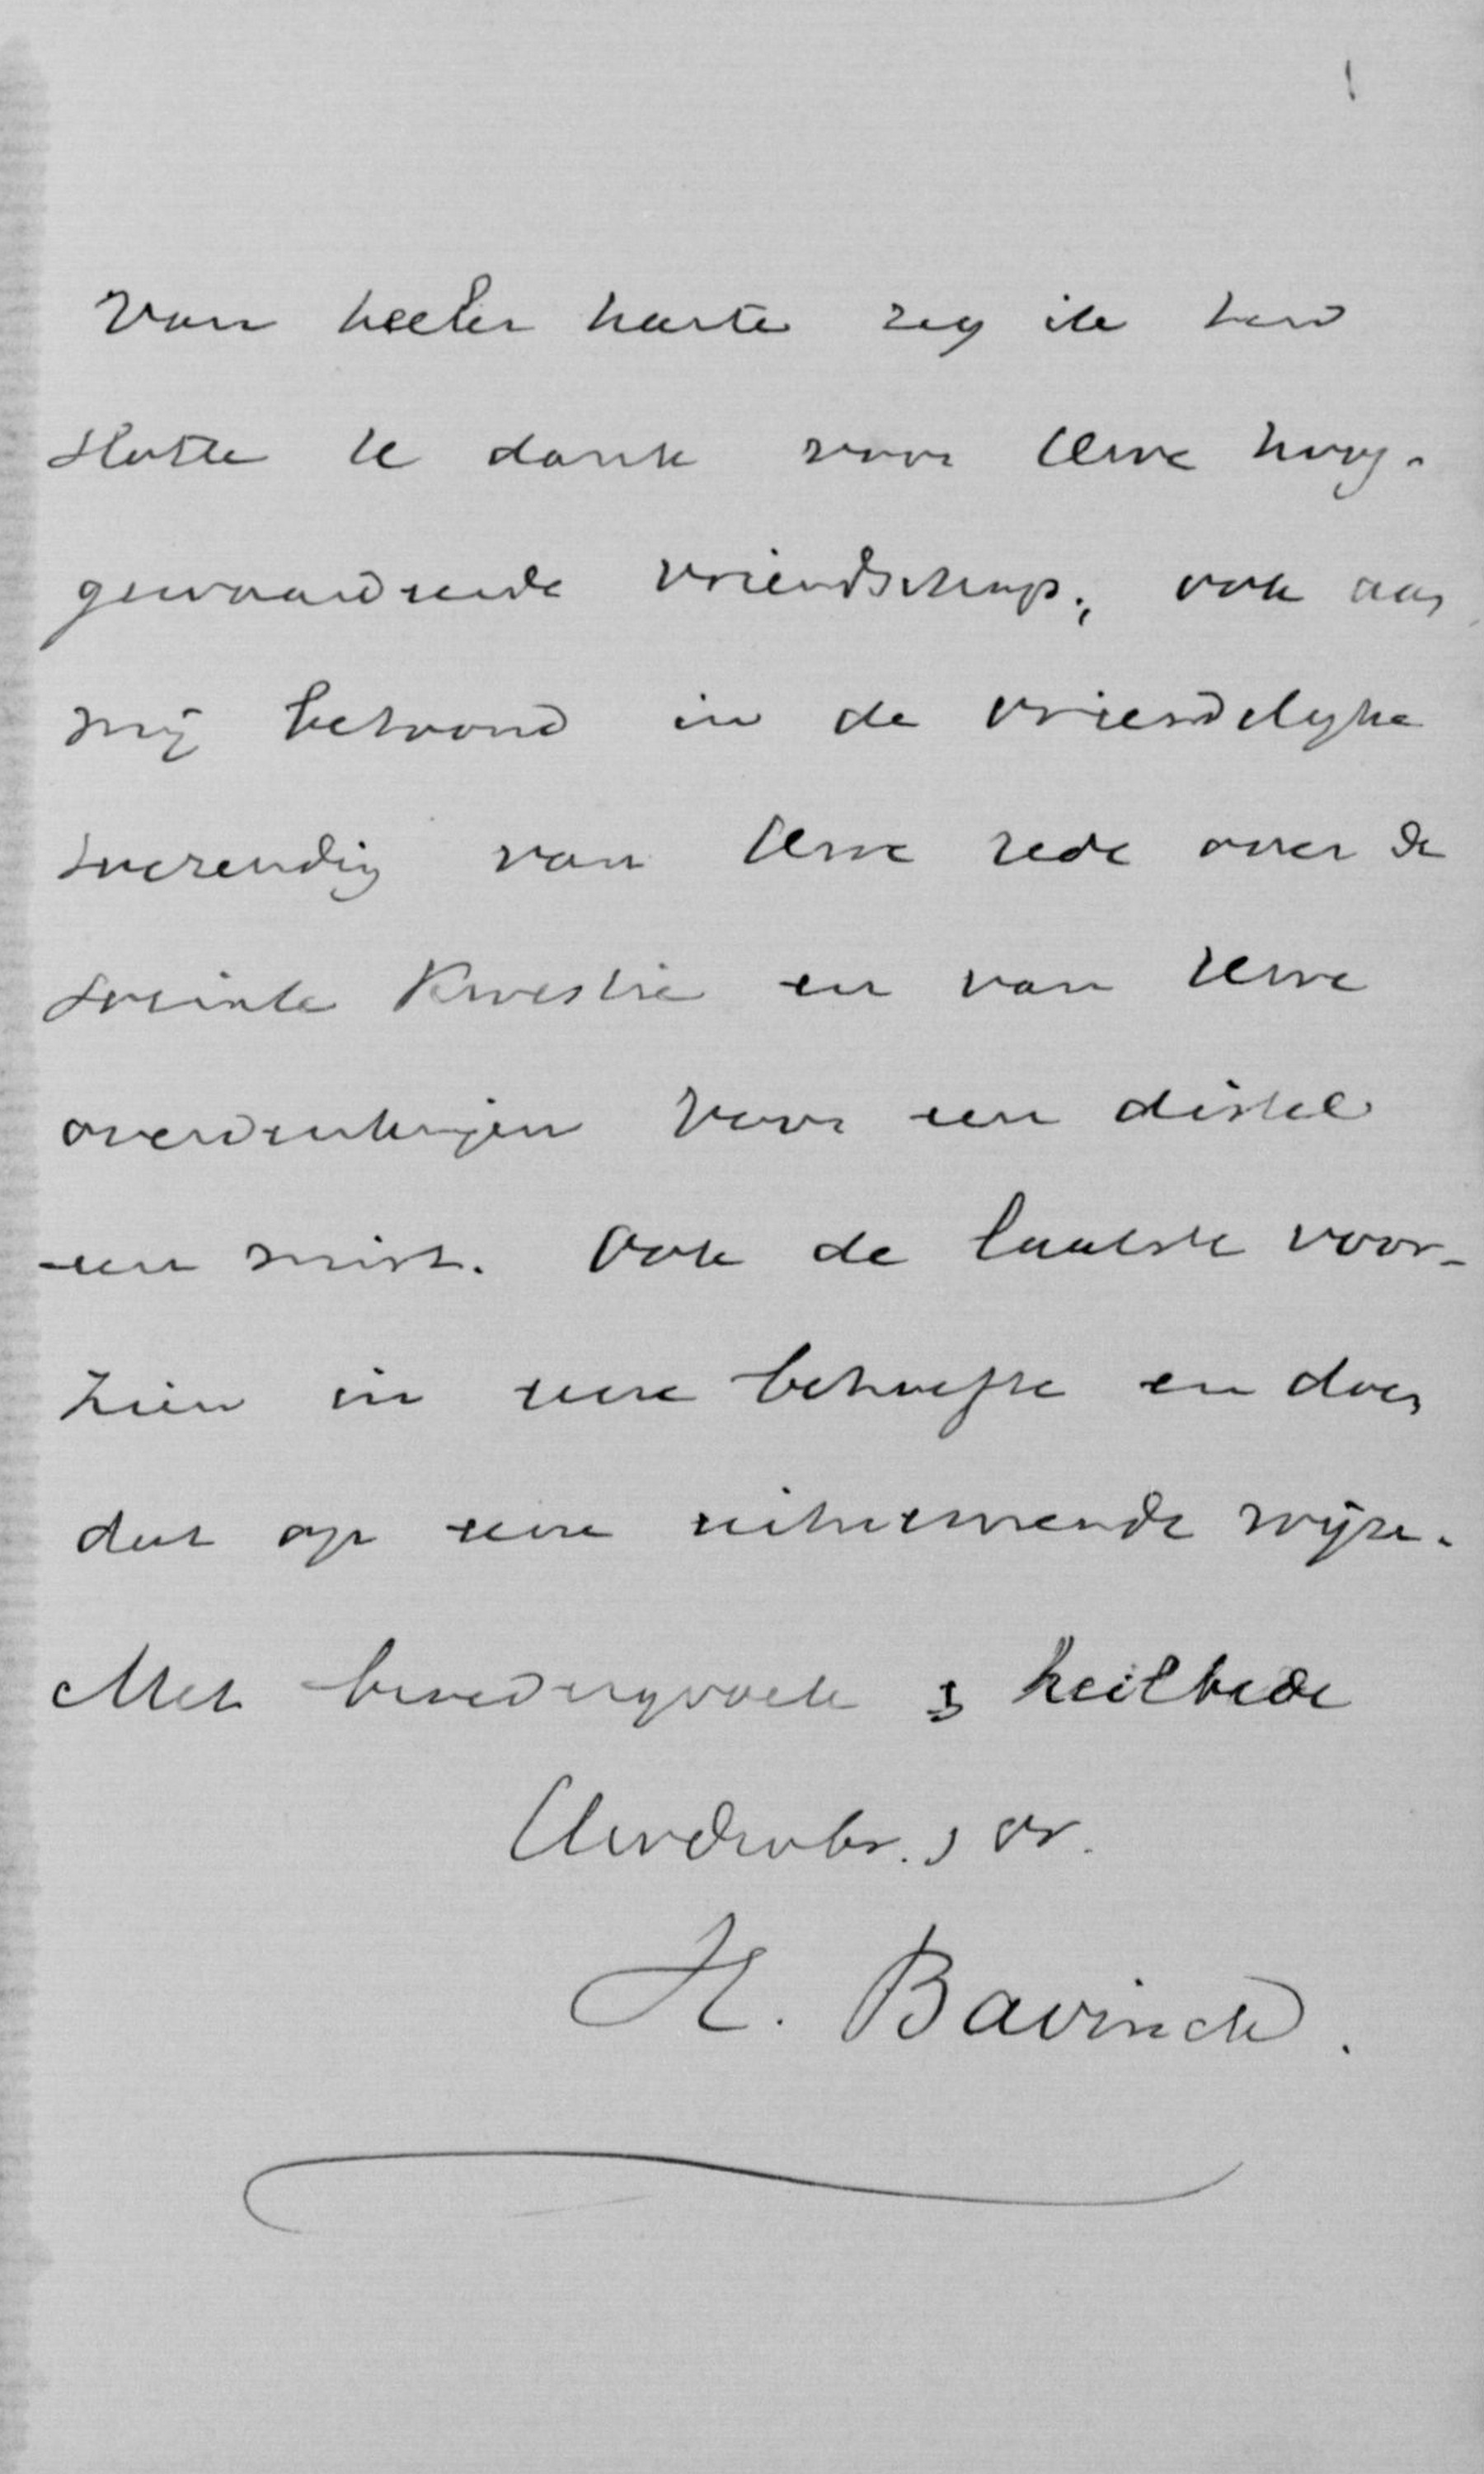 Van heeler harte zeg ik ten
slotte U dank voor Uwe hoog-
gewaardeerde vriendschap, ook aan
mij betoond in de vriendelijke
toezending van Uwe rede over de
sociale kwestie en van Uwe
overdenkingen voor een distel
een mirt. Ook de laatste voor-
zien in eene behoefte en doen
dat op eene uitnemende wijze.
Met broedergroete & heilbede
Uw dw br. & vr.
H. Bavinck.